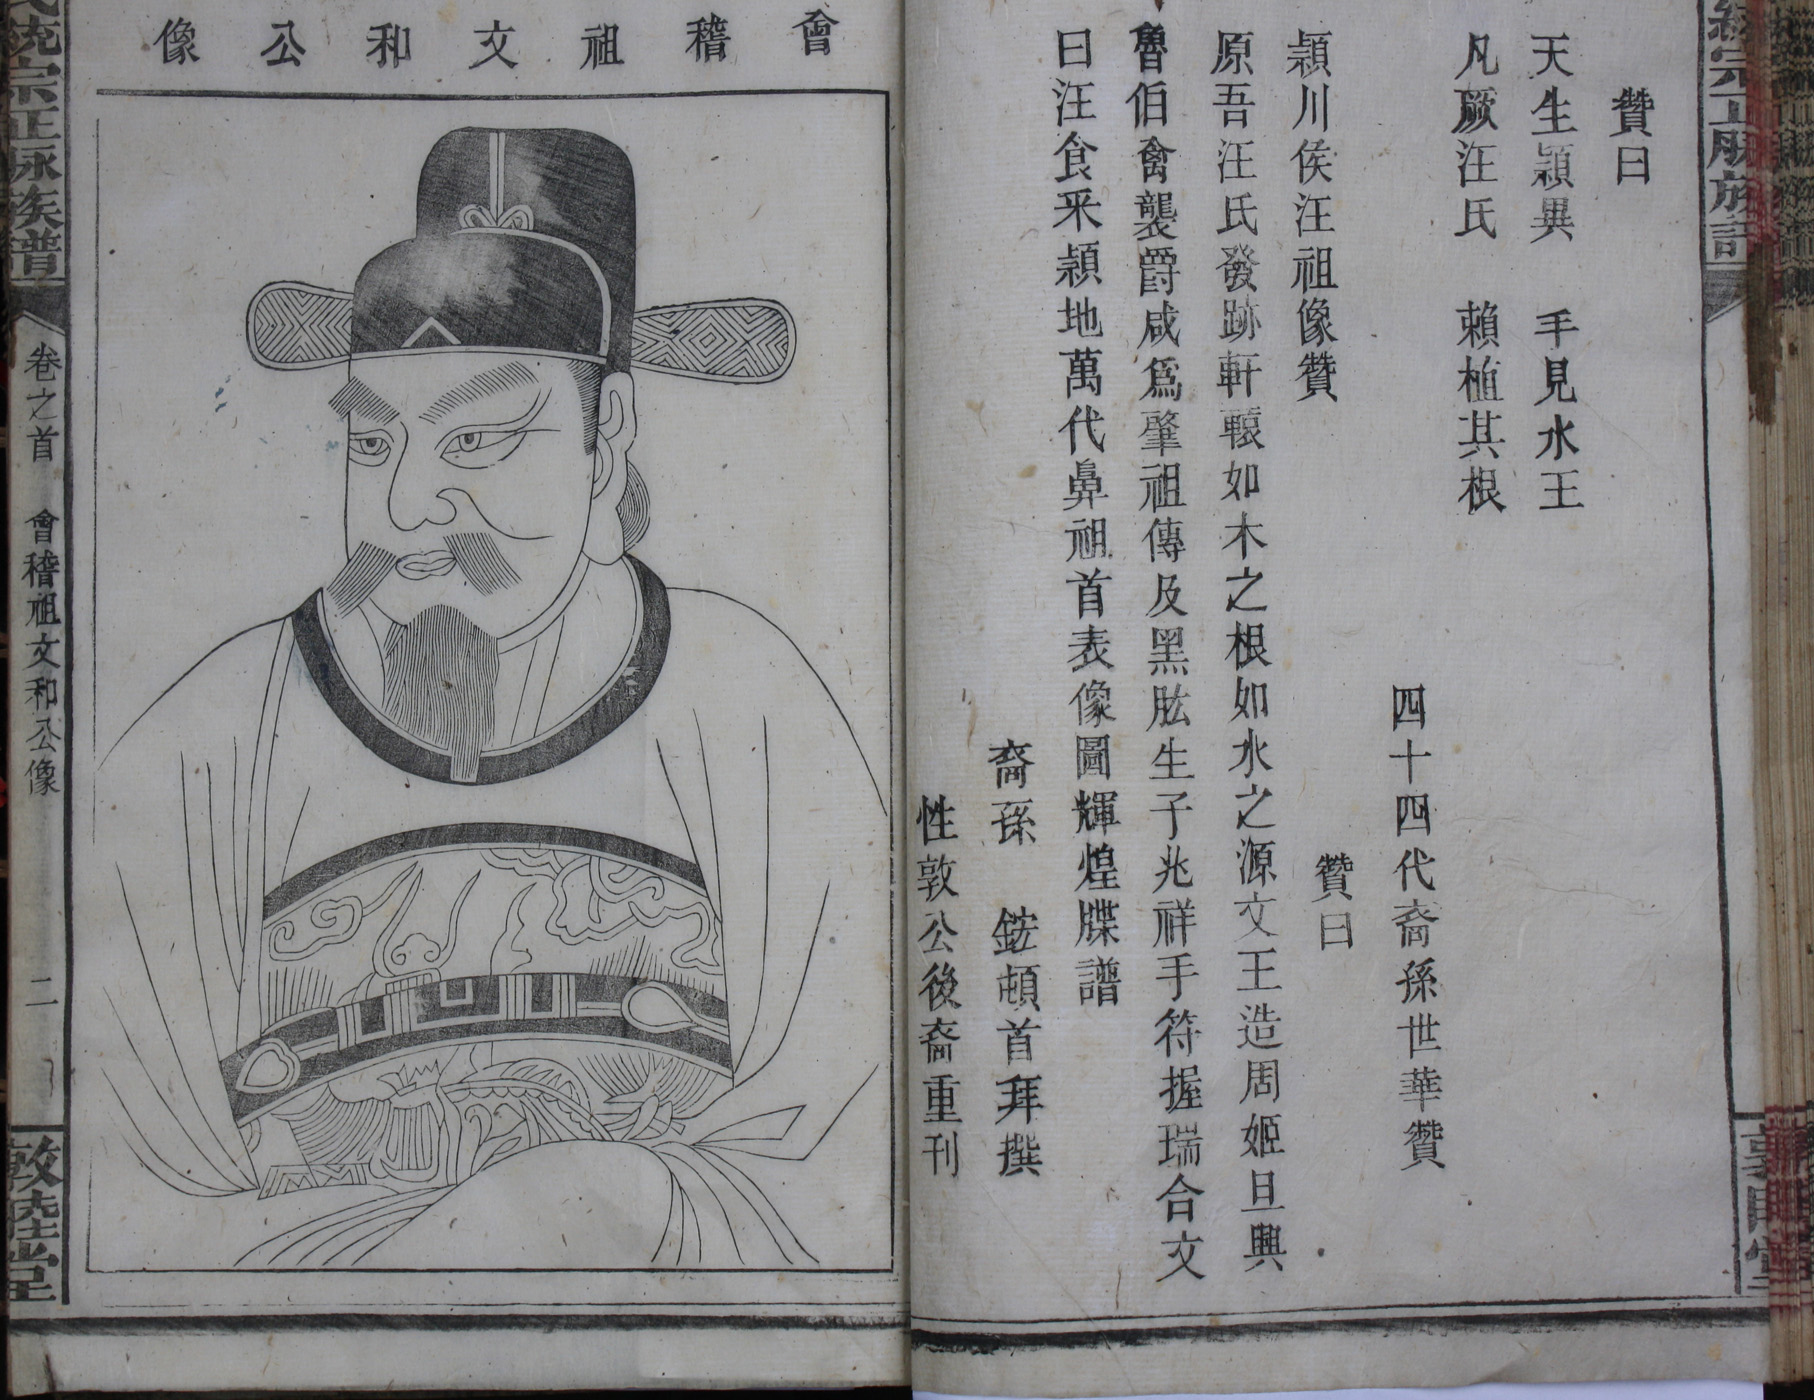 贊曰
天生頴異　手見水王
凡厥汪氏　賴植其根
四十四代裔孫世華贊
頴川侯汪祖像贊
贊曰
原吾汪氏發跡軒轅如木之根如水之源文王造周姬旦興
魯伯禽襲爵咸為肇祖傳及黑肱生子兆祥手符握瑞合文
曰汪食采頴地萬代鼻祖首表像圖輝煌牒譜
裔孫　鋐頓首拜撰
性敦公後裔重刊
會稽祖文和公像
統宗正脉族譜
卷之首　會稽祖文和公像　二
敦睦堂